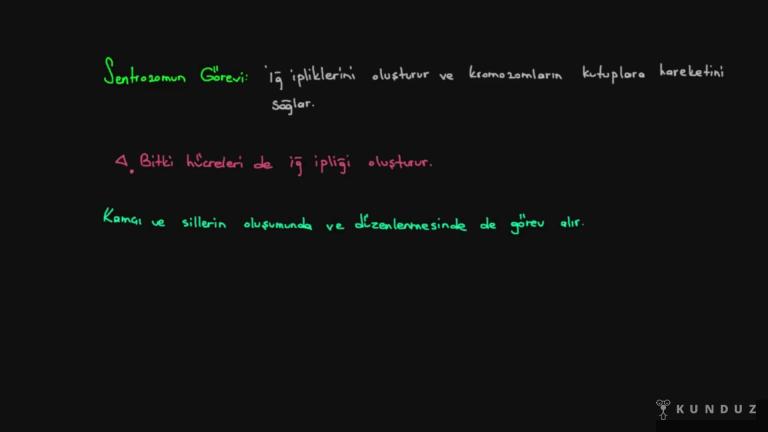 Sentrozomun Görevi: İğ ipliklerini oluşturur ve kromozomların kutuplara hareketini
sağlar.
Bitki hücreleri de iğ ipliği oluşturur.
Kamçı ve sillerin oluşumunda ve düzenlenmesinde de görev alır.
KUNDUZ